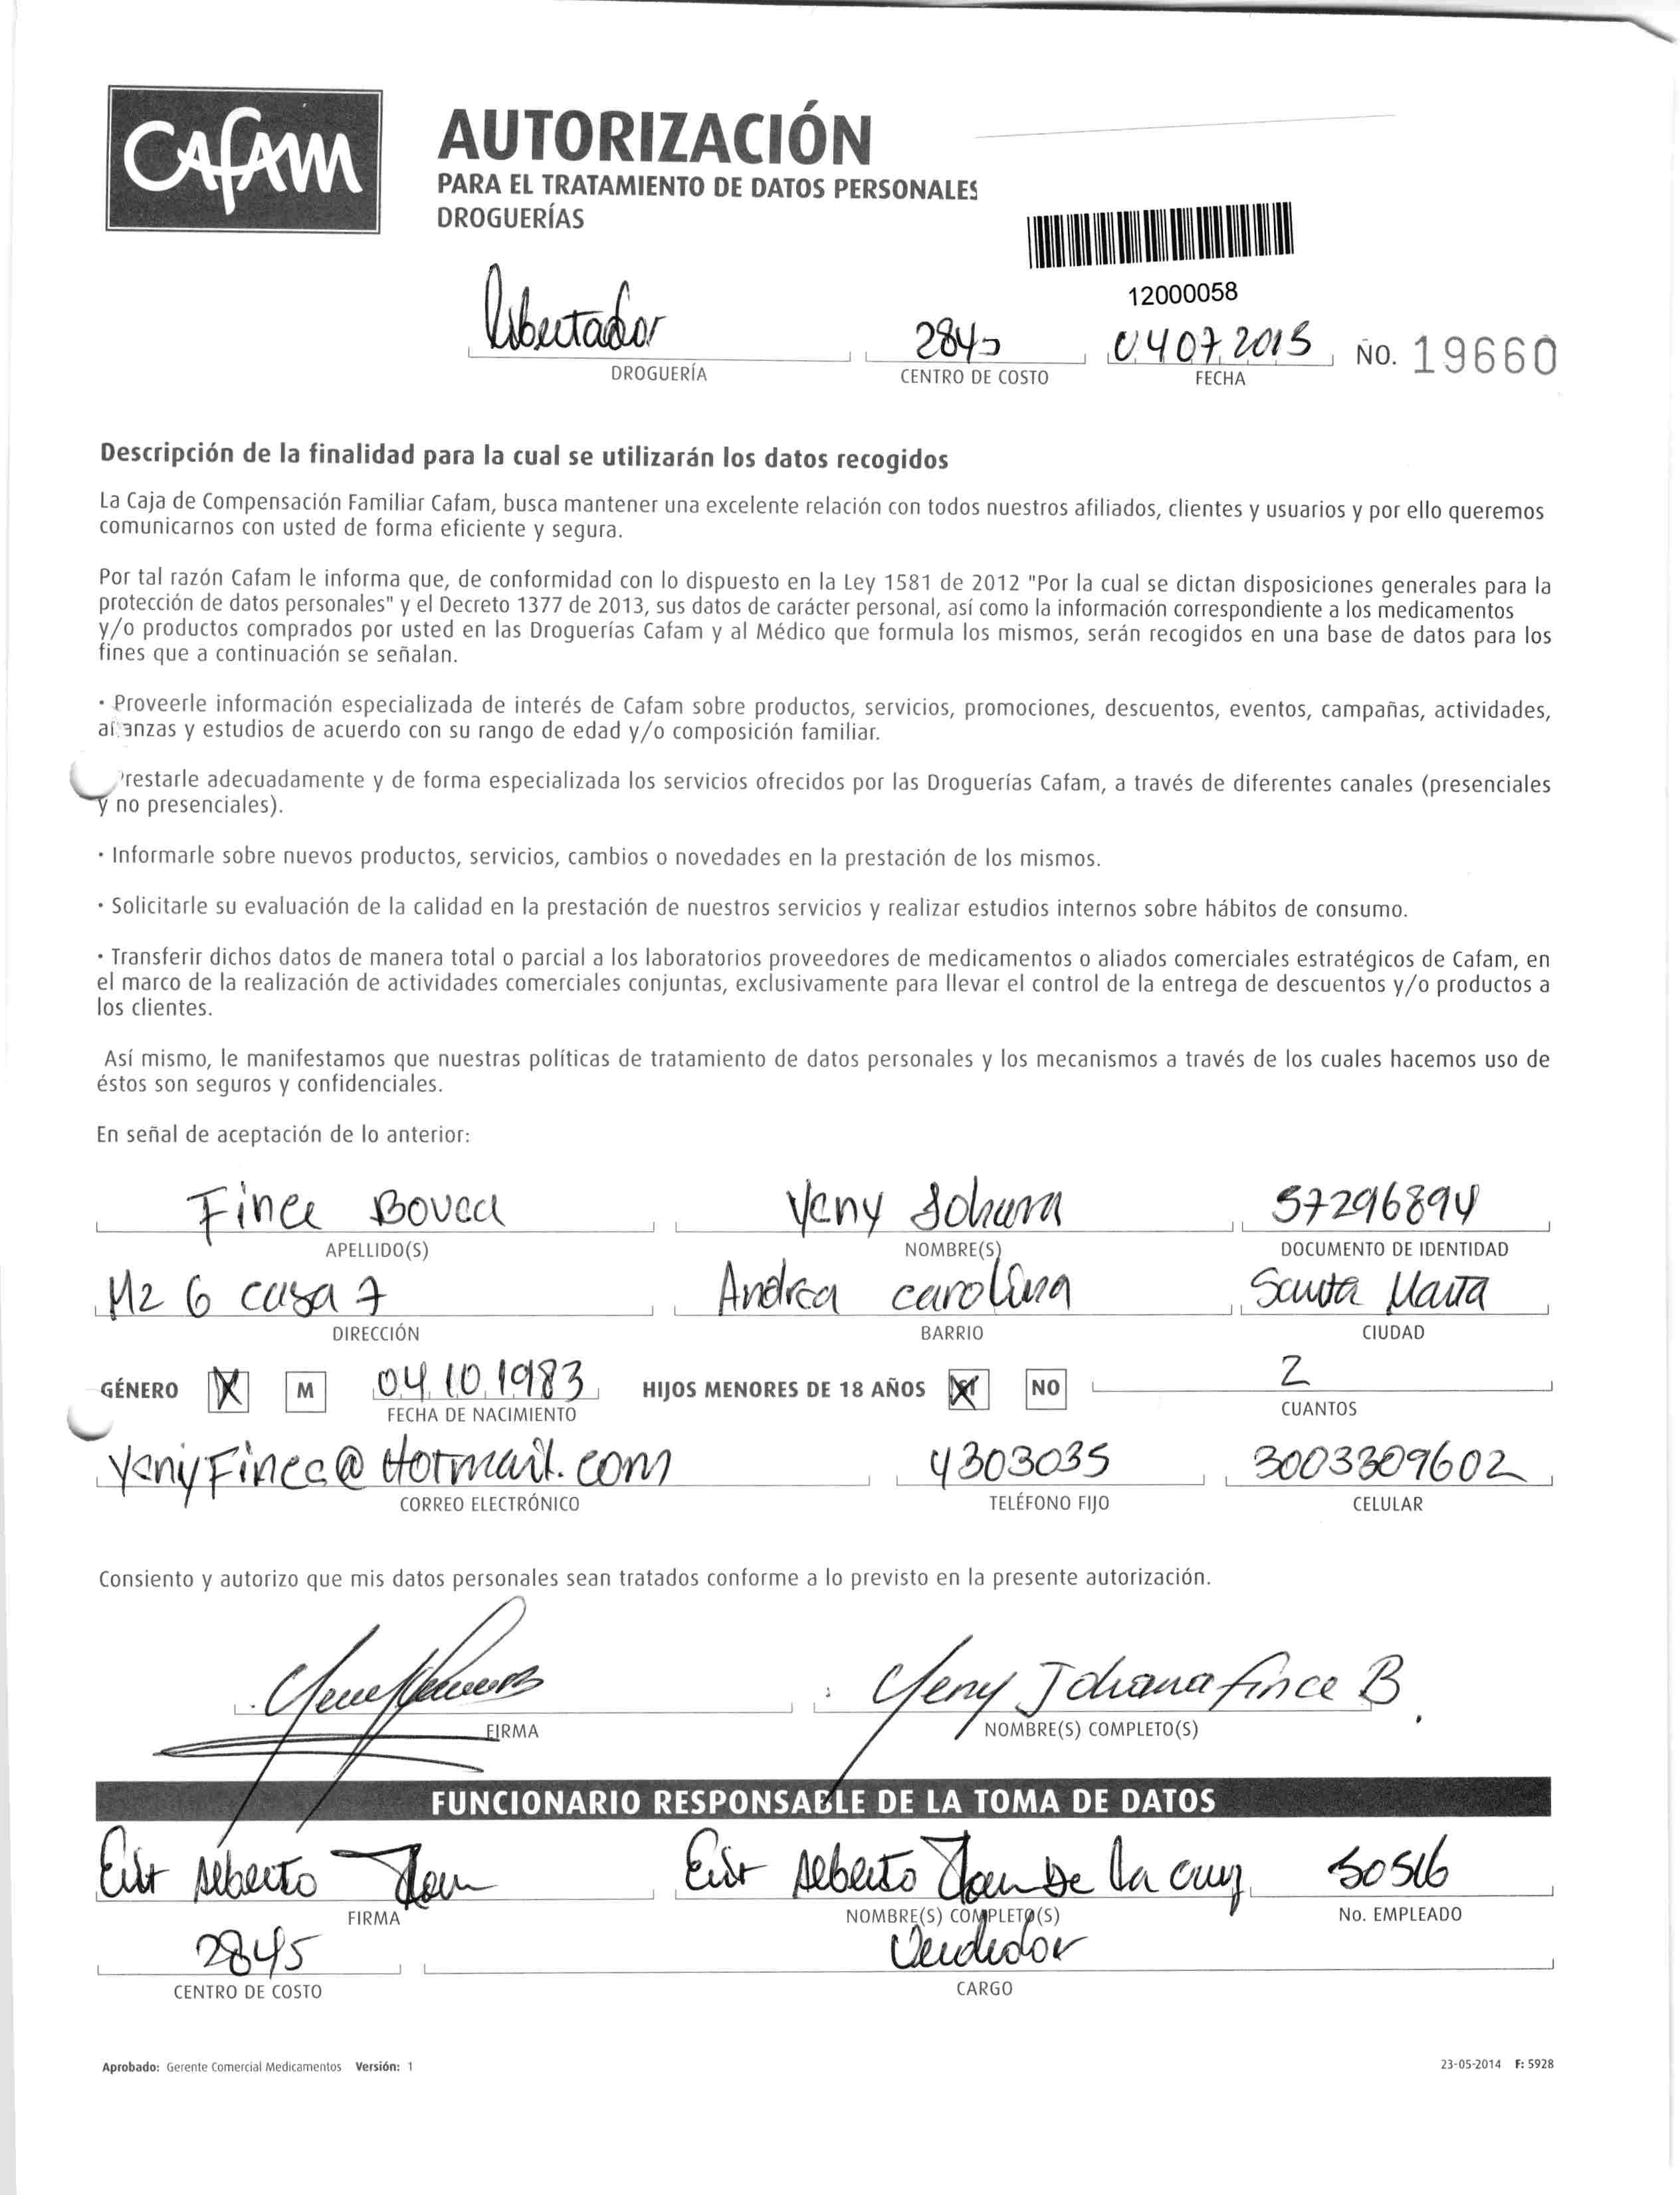 CAFAM
AUTORIZACIÓN
PARA EL TRATAMIENTO DE DATOS PERSONALES
DROGUERÍAS
12000058
Libertador 2845 04 07 2015 No. 19660
DROGUERÍA CENTRO DE COSTO FECHA
Descripción de la finalidad para la cual se utilizarán los datos recogidos
La Caja de Compensación Familiar Cafam, busca mantener una excelente relación con todos nuestros afiliados, clientes y usuarios y por ello queremos
comunicarnos con usted de forma eficiente y segura.
Por tal razón Cafam le informa que, de conformidad con lo dispuesto en la Ley 1581 de 2012 "Por la cual se dictan disposiciones generales para la
protección de datos personales" y el Decreto 1377 de 2013, sus datos de carácter personal, así como la información correspondiente a los medicamentos
y/o productos comprados por usted en las Droguerías Cafam y al Médico que formula los mismos, serán recogidos en una base de datos para los
fines que a continuación se señalan.
· Proveerle información especializada de interés de Cafam sobre productos, servicios, promociones, descuentos, eventos, campañas, actividades,
alianzas y estudios de acuerdo con su rango de edad y/o composición familiar.
Prestarle adecuadamente y de forma especializada los servicios ofrecidos por las Droguerías Cafam, a través de diferentes canales (presenciales
y no presenciales).
· Informarle sobre nuevos productos, servicios, cambios o novedades en la prestación de los mismos.
· Solicitarle su evaluación de la calidad en la prestación de nuestros servicios y realizar estudios internos sobre hábitos de consumo.
· Transferir dichos datos de manera total o parcial a los laboratorios proveedores de medicamentos o aliados comerciales estratégicos de Cafam, en
el marco de la realización de actividades comerciales conjuntas, exclusivamente para llevar el control de la entrega de descuentos y/o productos a
los clientes.
Así mismo, le manifestamos que nuestras políticas de tratamiento de datos personales y los mecanismos a través de los cuales hacemos uso de
éstos son seguros y confidenciales.
En señal de aceptación de lo anterior:
Fince Bovea Yeny Johana 57296894
APELLIDO(S) NOMBRE(S) DOCUMENTO DE IDENTIDAD
Mz 6 casa 7 Andrea carolina Santa Marta
DIRECCIÓN BARRIO CIUDAD
GÉNERO X M 04 10 1983 HIJOS MENORES DE 18 AÑOS SI NO 2
FECHA DE NACIMIENTO CUANTOS
YenyFince@Hotmail.com 4303035 3003309602
CORREO ELECTRÓNICO TELÉFONO FIJO CELULAR
Consiento y autorizo que mis datos personales sean tratados conforme a lo previsto en la presente autorización.
Yeny Johana fince B.
FIRMA NOMBRE(S) COMPLETO(S)
FUNCIONARIO RESPONSABLE DE LA TOMA DE DATOS
Alberto Alberto De la cruz 50516
FIRMA NOMBRE(S) COMPLETO(S) No. EMPLEADO
2845 Vendedor
CENTRO DE COSTO CARGO
Aprobado: Gerente Comercial Medicamentos Versión: 1 23-05-2014 F: 5928